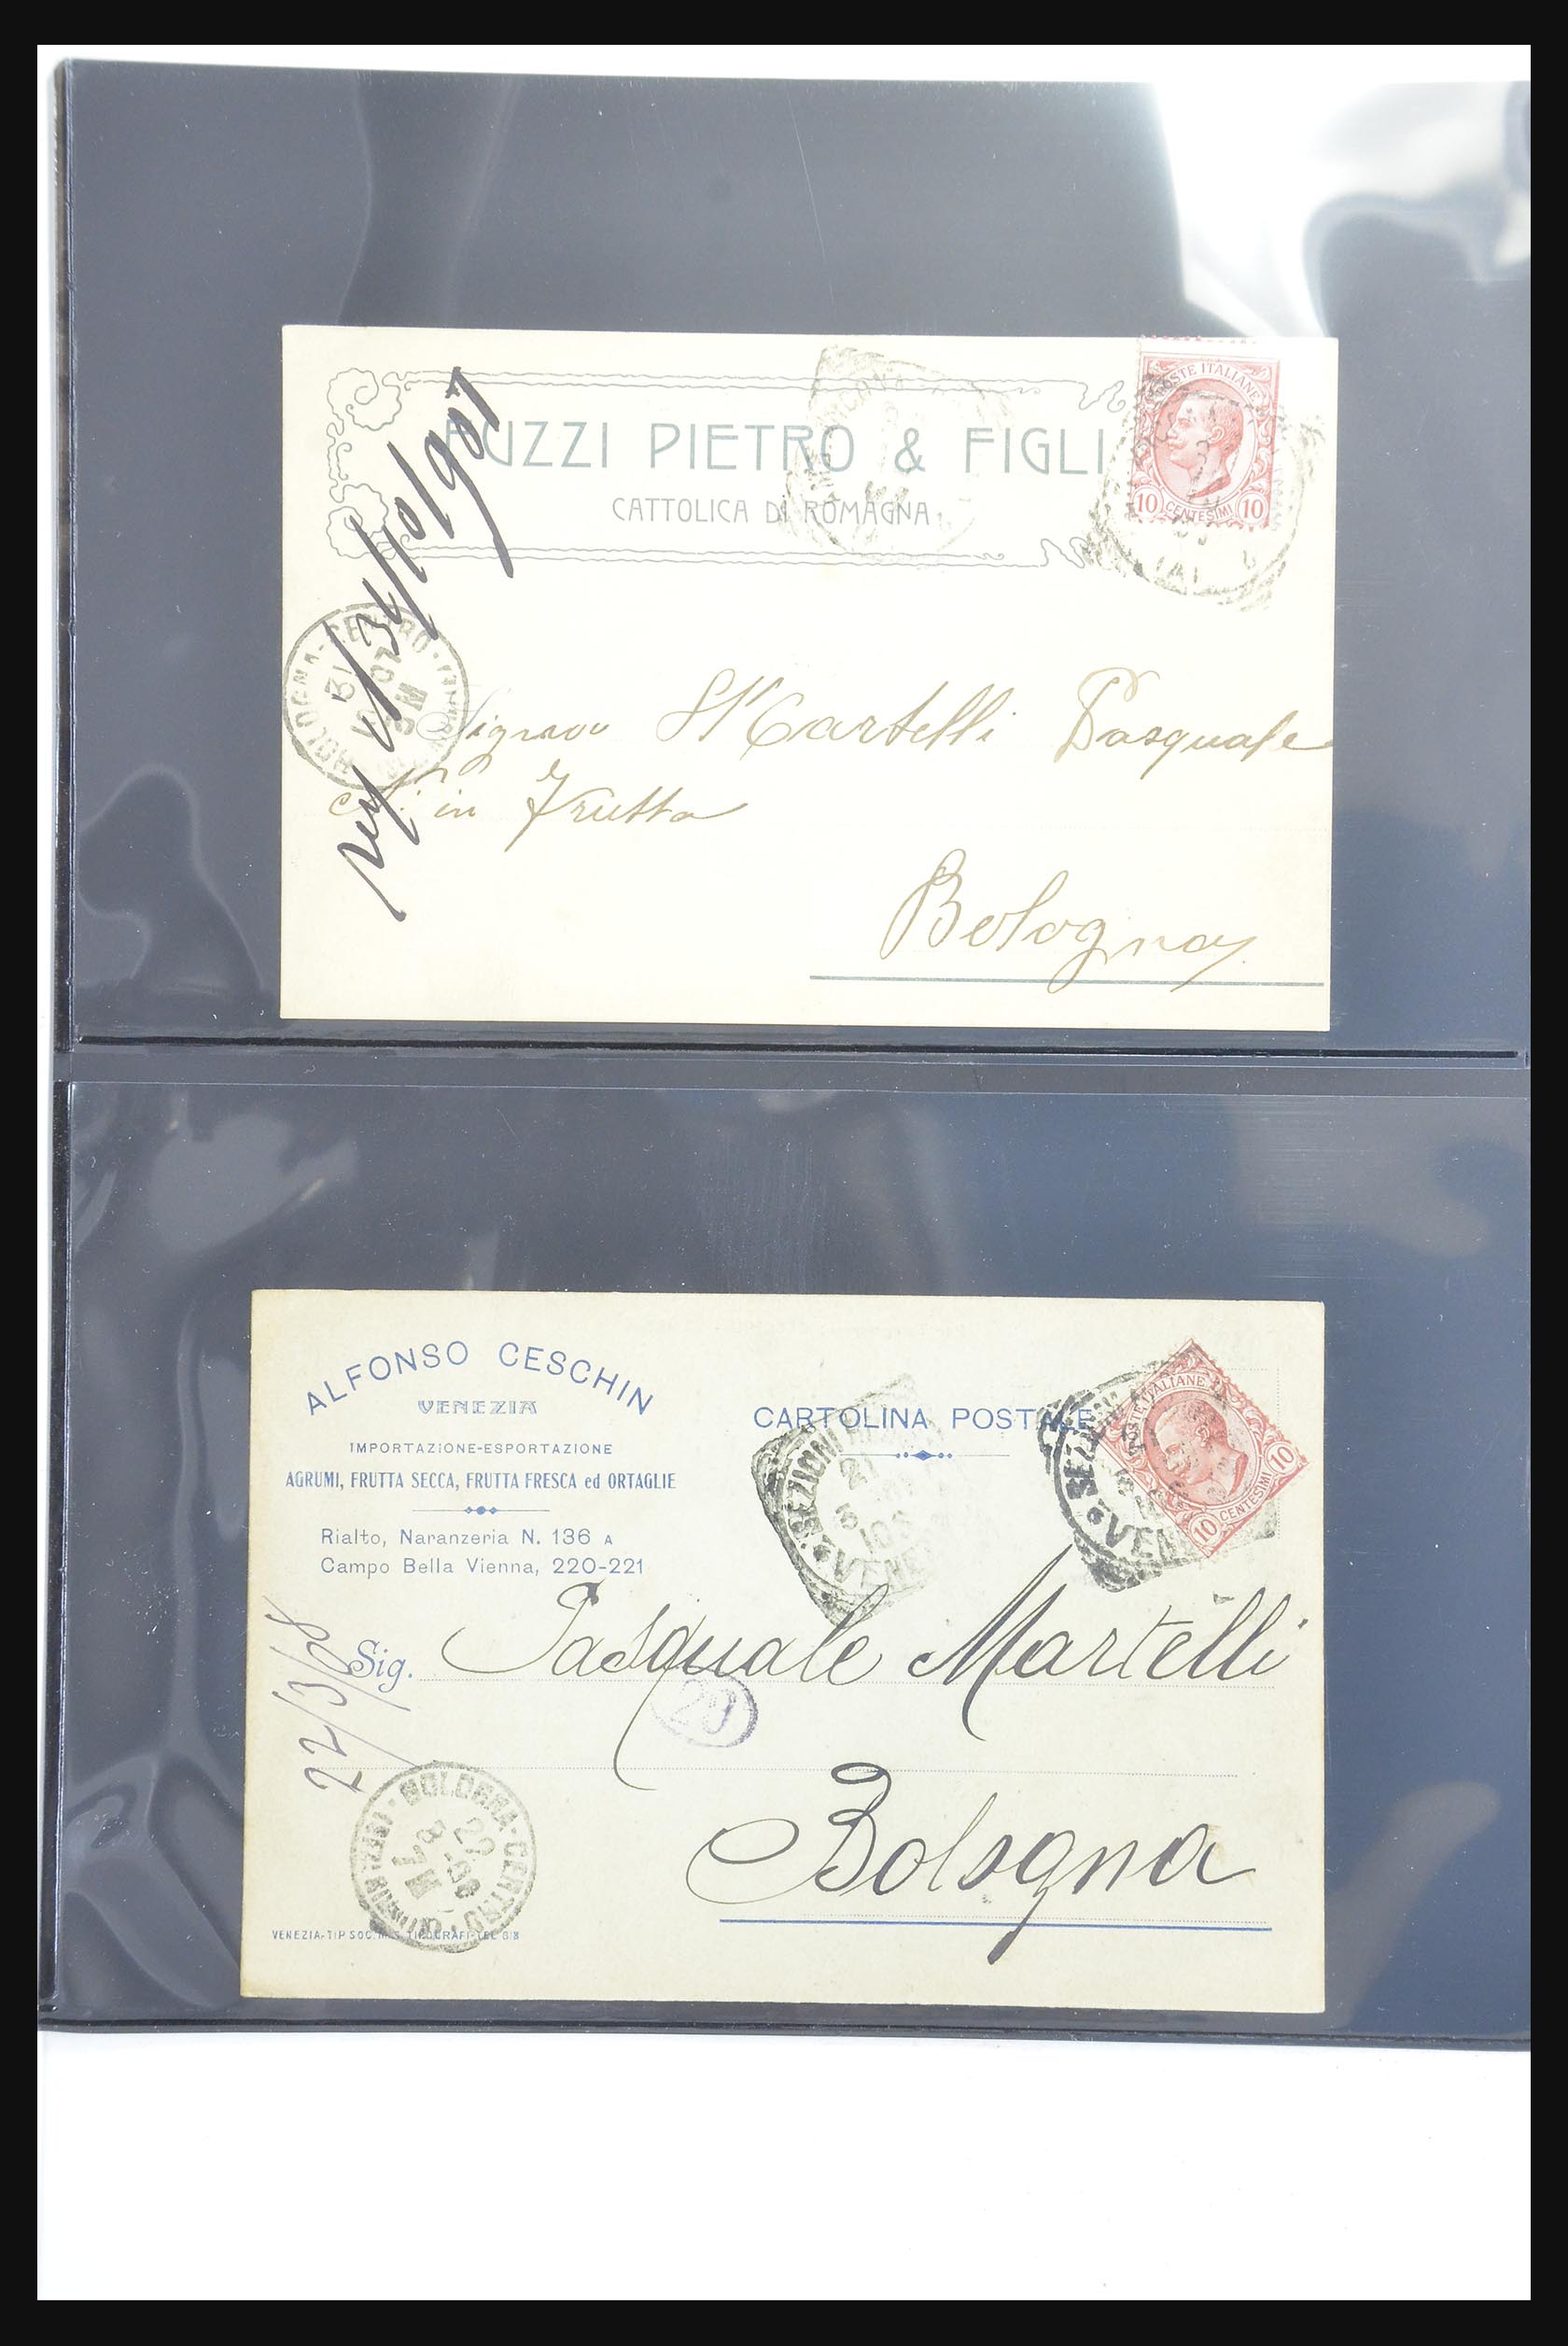 UZZI PIETRO & FIGLI
CATTOLICA DI ROMAGNA
POSTE ITALIANE
10 CENTESIMI 10
31/10/907
BOLOGNA-CENTRO
Martelli Pasquale
in Frutta
Bologna
ALFONSO CESCHIN
VENEZIA
IMPORTAZIONE-ESPORTAZIONE
AGRUMI, FRUTTA SECCA, FRUTTA FRESCA ed ORTAGLIE
Rialto, Naranzeria N. 136 A
Campo Bella Vienna, 220-221
CARTOLINA POSTALE
POSTE ITALIANE
10 CENTESIMI 10
SEZIONI
21
3
VENE
VEN
22/3/08
Sig. Pasquale Martelli
20
Bologna
BOLOGNA-CENTRO
22
VENEZIA-TIP. SOC. TIPOGRAFI-TEL.